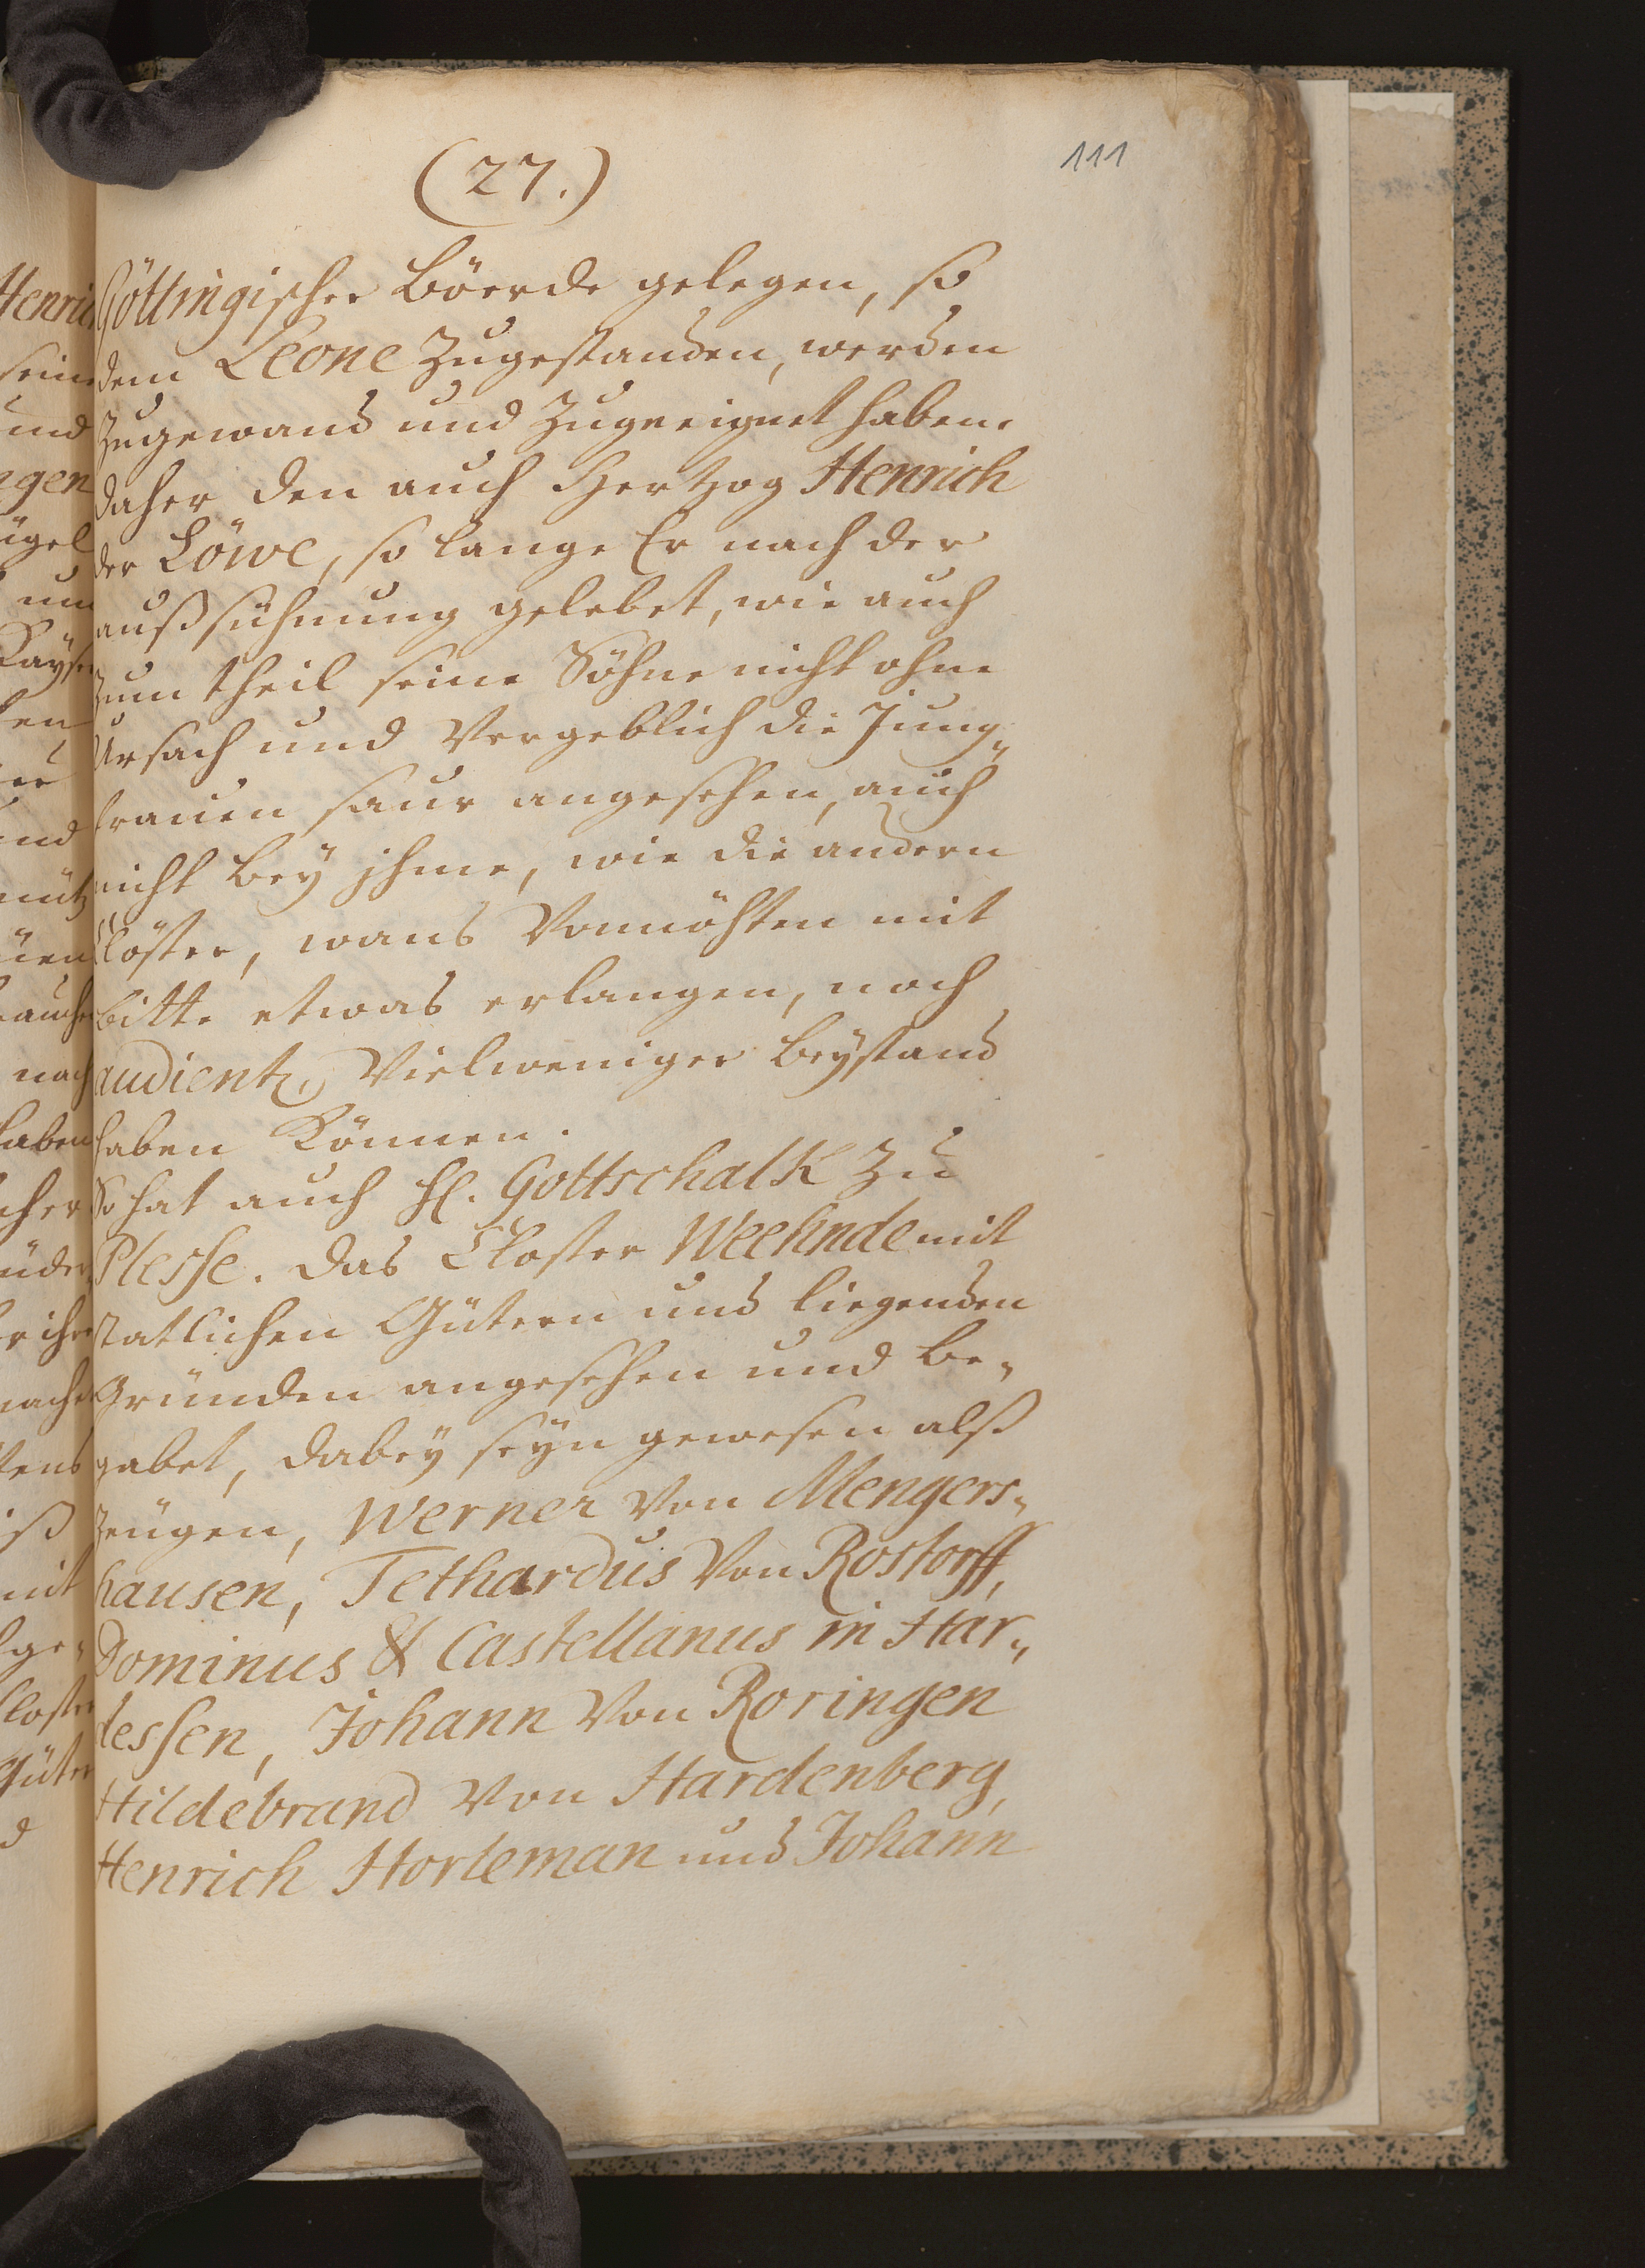 (27.)
111
Göttingischer Böerde gelegen, so
dem Leone zugestanden, werden
zugewand und zugeeignet haben.
daher den auch Hertzog Henrich
der Löwe, so lange Er nach der
außsühnung gelebet, wie auch
zum theil seine Söhne nicht ohne
Ursach und Vergeblich die Jung„
frauen saur angesehen, auch
nicht bey jhme, wie die andern
Clöster, wans Vonnöhten mit
bitte etwas erlangen, noch
audientz, Vielweniger beystand
haben Können.
So hat auch H. Gottschalk zu
Plesse. das Closter Weehnde mit
statlichen Gütern und liegenden
Gründen angesehen und be„
gabet, dabey seyn gewesen alß
Zeugen, Werner Von Mengers„
hausen, Tethardus Von Rostorff,
Dominus & Castellanus in Har„
dessen, Johann Von Roringen
Hildebrand Von Hardenberg,
Henrich Horleman und Johann